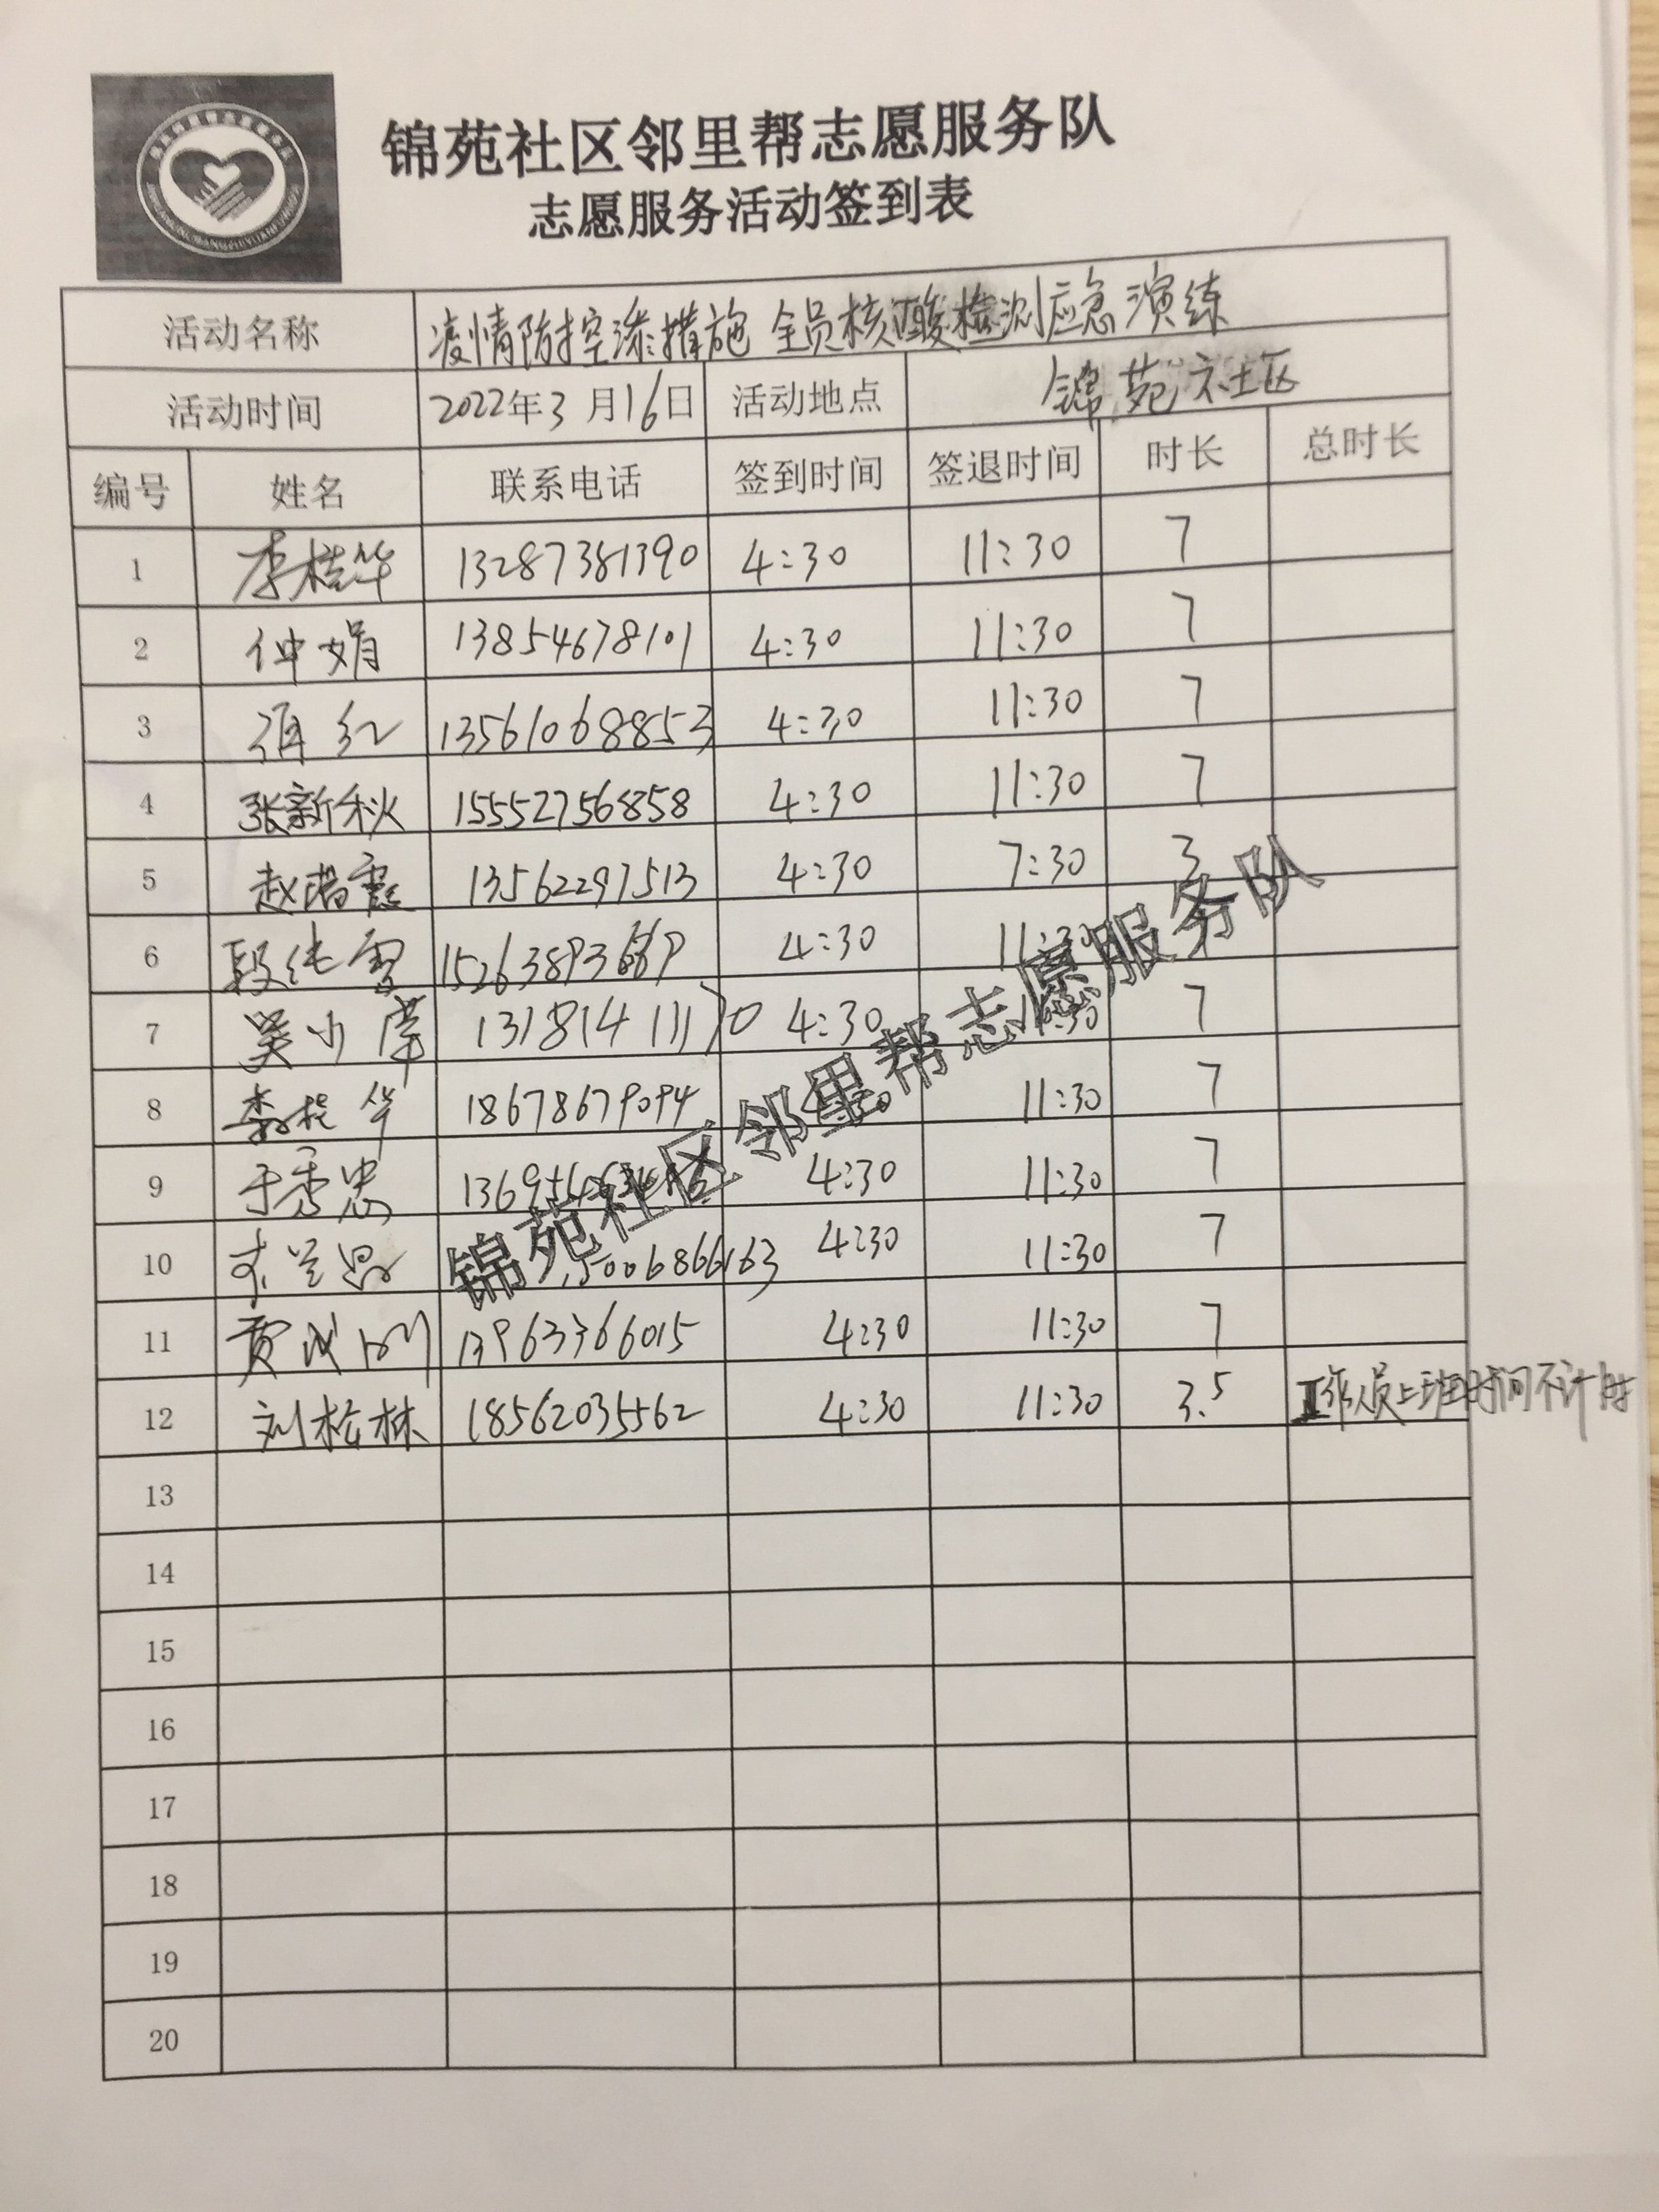 锦苑社区邻里帮志愿服务队
志愿服务活动签到表
活动名称 疫情防控添措施 全员核酸检测应急演练
活动时间 2022年3月16日 活动地点 锦苑社区
编号 姓名 联系电话 签到时间 签退时间 时长 总时长
1 李桂华 13287381390 4:30 11:30 7
2 仲娟 13854678101 4:30 11:30 7
3 红 13561068853 4:30 11:30 7
4 张新秋 15552756858 4:30 11:30 7
5 赵 13562297513 4:30 7:30 3
6 段 4:30 11:30
7 吴少 13181411170 4:30 11:30 7
8 李桂华 18678679094 4:30 11:30 7
9 于秀忠 4:30 11:30 7
10 15006866163 4:30 11:30 7
11 贾 13963366015 4:30 11:30 7
12 刘松林 18562035562 4:30 11:30 3.5 工作人员上班时间不计时
13
14
15
16
17
18
19
20
锦苑社区邻里帮志愿服务队